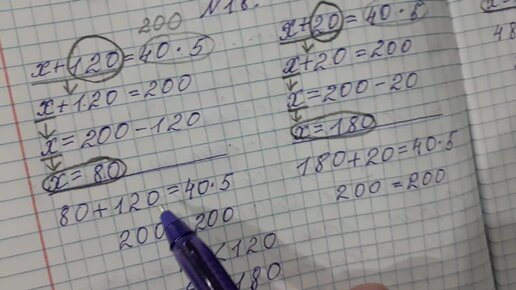 №18.
200
x+120=40·5
x+120=200
x=200-120
x=80
80+120=40·5
200 200
120
180
x+20=40·5
x+20=200
x=200-20
x=180
180+20=40·5
200=200
48